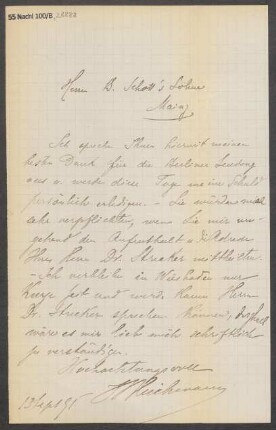 55 Nachl 100/B,
Herrn B. Schott's Söhne
Mainz
Ich spreche Ihnen hiermit meinen
besten Dank für die Berliner Sendung
aus u. werde diese Tage meine Schuld
persönlich erledigen. – Sie würden mich
sehr verpflichten, wenn Sie mir um-
gehend den Aufenthalt u. d. Adresse
Ihres Herrn Dr. Strecker mittheilten.
– Ich verbleibe in Wiesbaden nur
kurze Zeit und werde kaum Herrn
Dr. Strecker sprechen können, deshalb
wäre es mir lieb mich schriftlich
zu verständigen.
Hochachtungsvoll
13 Sept 95